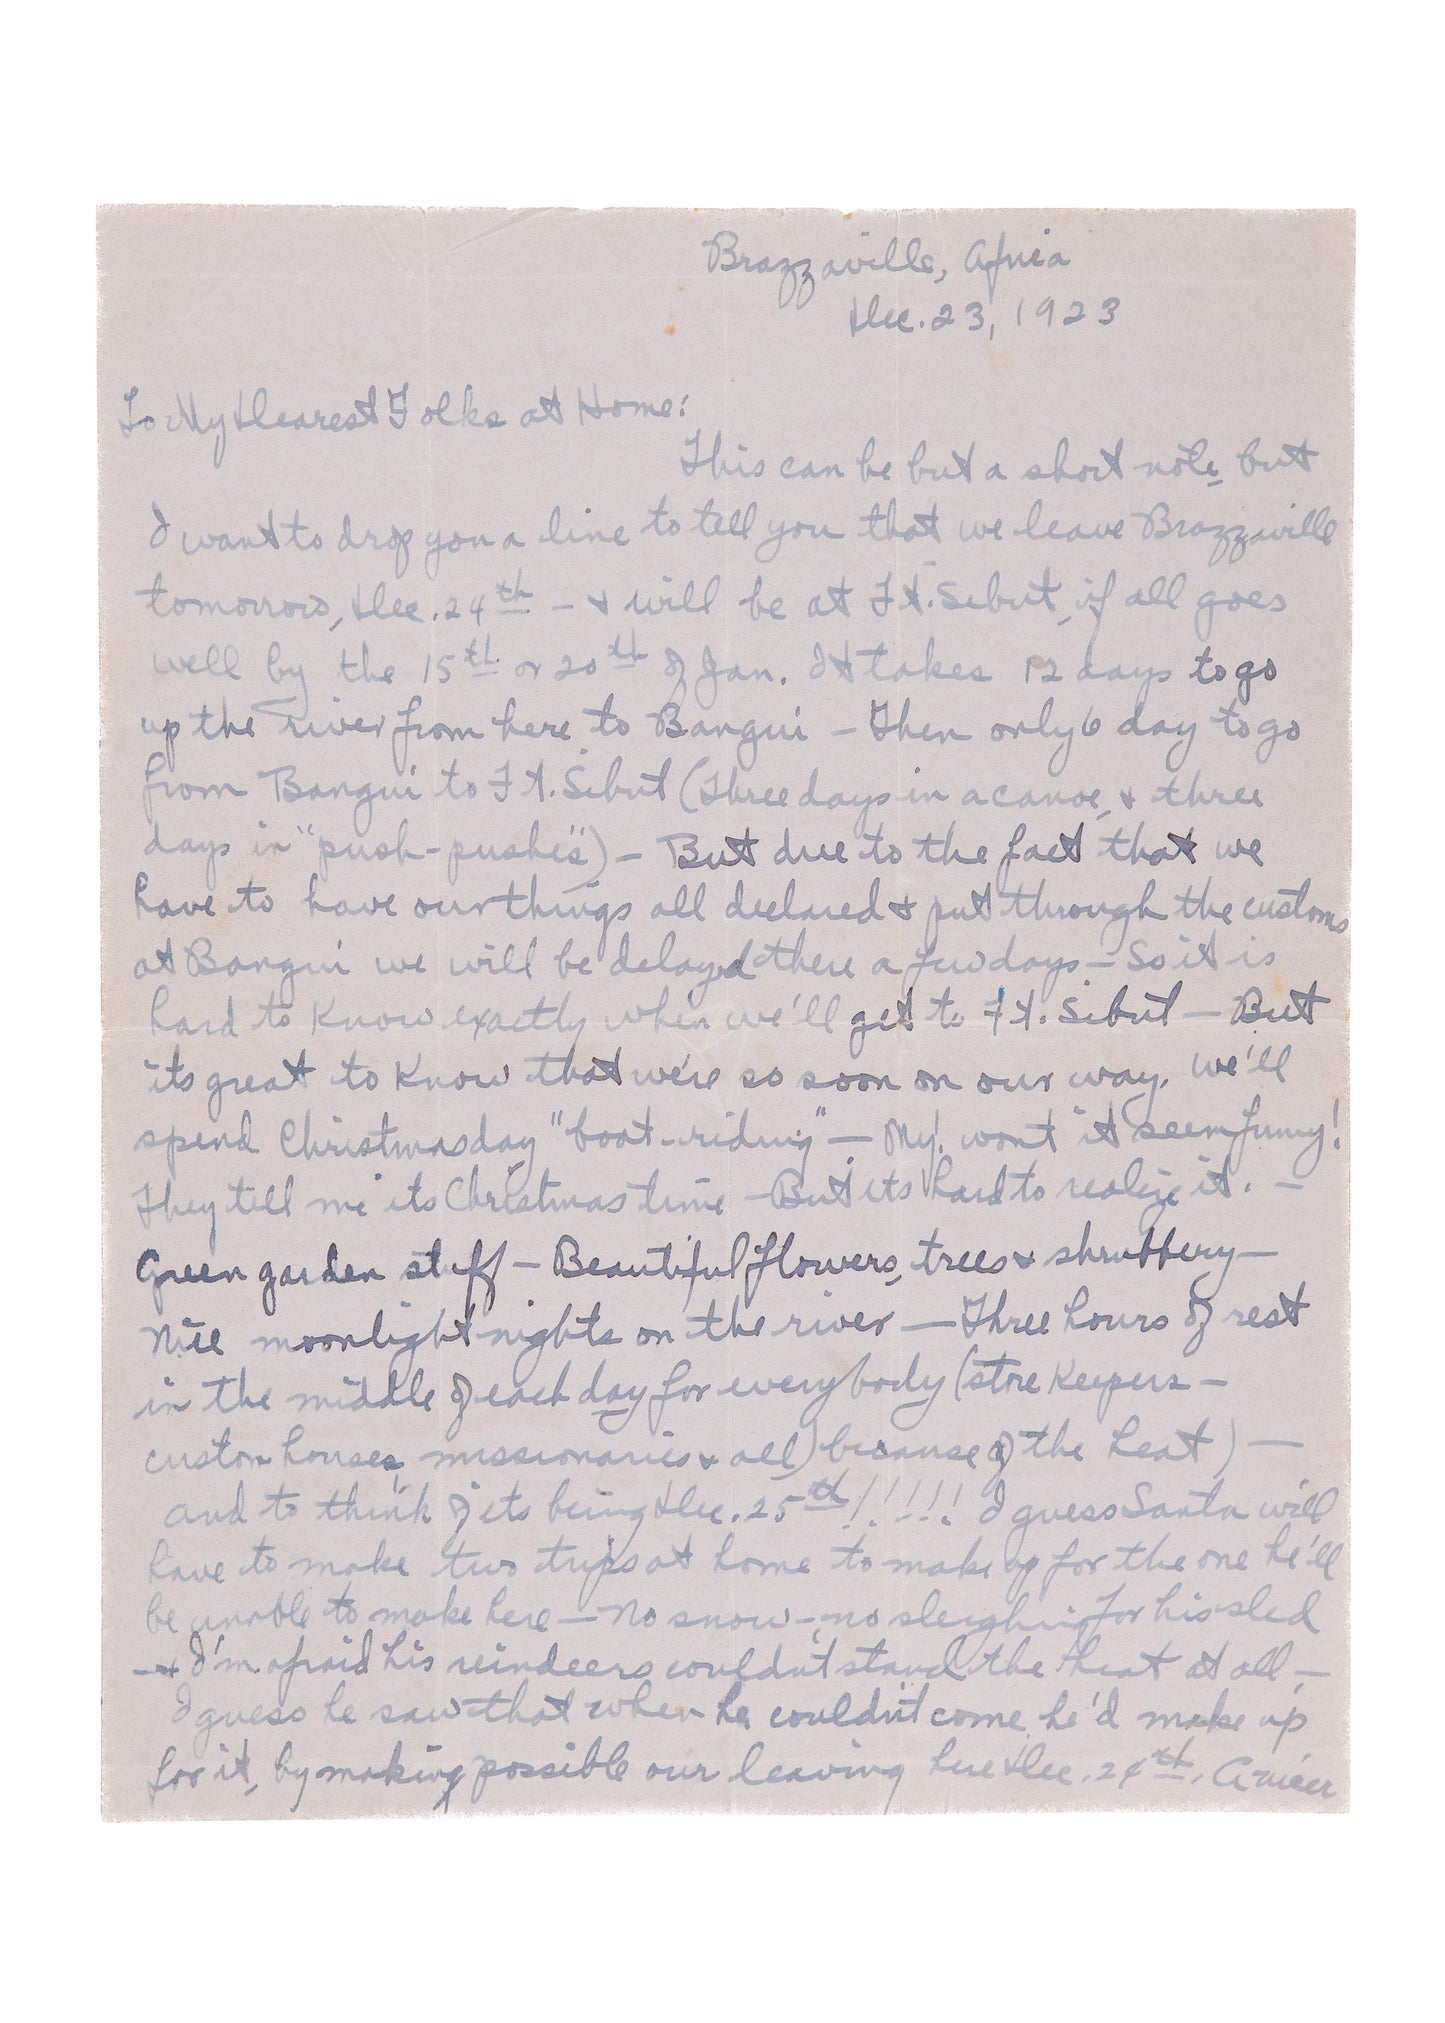 Brazzaville, Africa
Dec. 23, 1923
To My Dearest Folks at Home:
This can be but a short note, but
I want to drop you a line to tell you that we leave Brazzaville
tomorrow, Dec. 24th – & will be at Ft. Sibut, if all goes
well by the 15th or 20th of Jan. It takes 12 days to go
up the river from here to Bangui – Then only 6 day to go
from Bangui to Ft. Sibut (Three days in a canoe, & three
days in "push-pushes") – But due to the fact that we
have to have our things all declared & put through the customs
at Bangui we will be delayed there a few days – So it is
hard to know exactly when we'll get to Ft. Sibut – But
its great to know that we're so soon on our way. We'll
spend Christmas day "boat-riding" – My! wont it seem funny!
They tell me its Christmas time – But its hard to realize it. –
Green garden stuff – Beautiful flowers, trees & shrubbery –
Nice moonlight nights on the river – Three hours of rest
in the middle of each day for everybody (store keepers –
custom houses, missionaries & all) because of the heat) –
and to think of its being Dec. 25th!!!!! I guess Santa will
have to make two trips at home to make up for the one he'll
be unable to make here – No snow – no sleighing for his sled
– & I'm afraid his reindeers couldn't stand the heat at all, –
I guess he saw that when he couldn't come he'd make up
for it, by making possible our leaving here Dec. 24th. A nicer